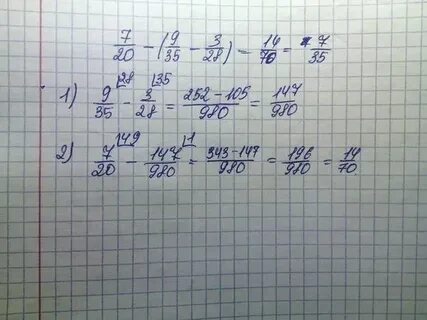 7/20 - (9/35 - 3/28) - 14/70 = 7/35
1) 9/35 ⌊28 - 3/28 ⌊35 = 252-105/980 = 147/980
2) 7/20 ⌊49 - 147/980 ⌊1 = 343-147/980 = 196/980 = 14/70